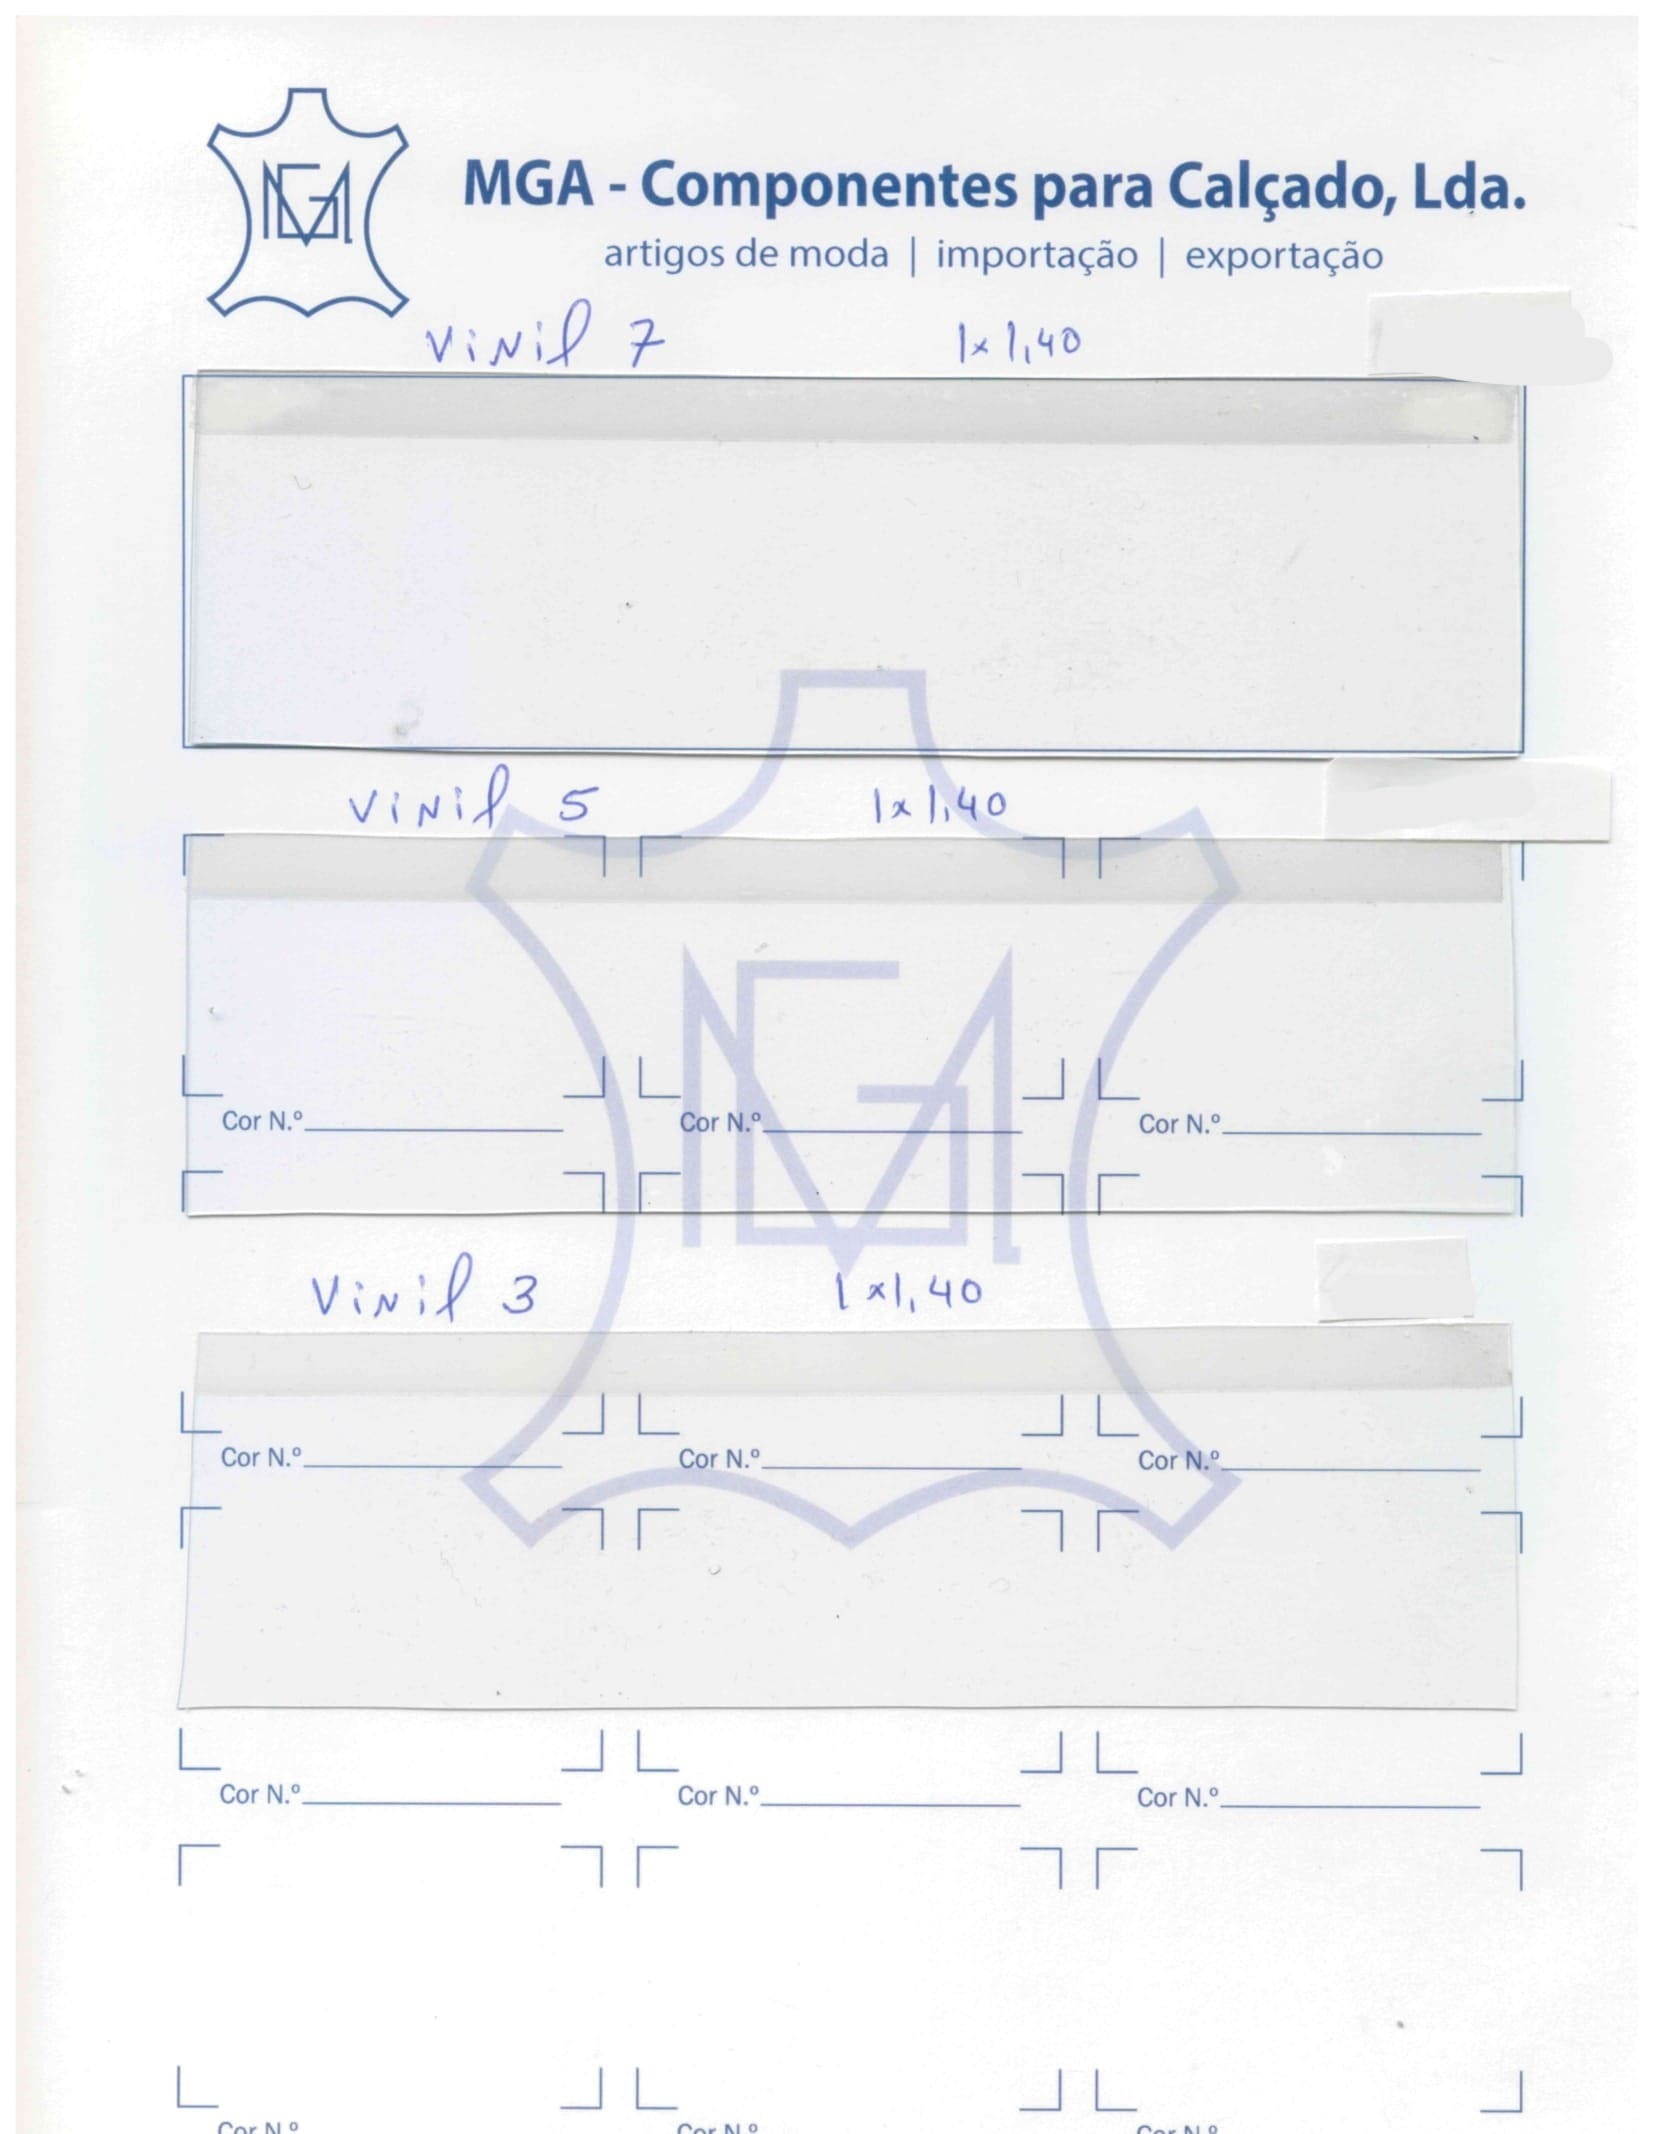 MGA
MGA - Componentes para Calçado, Lda.
artigos de moda | importação | exportação
Vinil 7 1x1,40
Vinil 5 1x1,40
MGA
Cor N.º Cor N.º Cor N.º
Vinil 3 1x1,40
Cor N.º Cor N.º Cor N.º
Cor N.º Cor N.º Cor N.º
Cor N.º Cor N.º Cor N.º